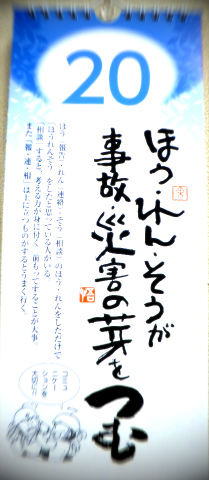 20
ほう・れん・そうが
事故災害の芽を
つむ
ほう「報告」・れん「連絡」・そう「相談」のほう・れんをしただけで
「ほうれんそう」をしたと思っている人がいる。
「相談」すること、考える力が身に付く。前もってすることが大事。
また「報・連・相」は上に立つものがするとうまく行く。
コミュ
ニケー
ションを
大切に!!